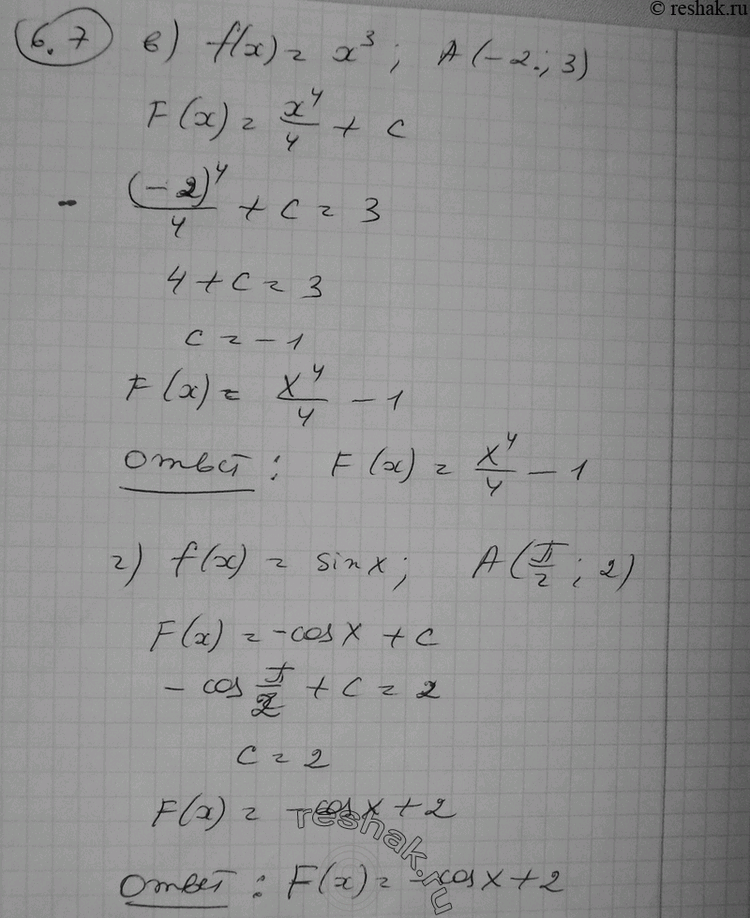 © reshak.ru
6.7 в) f(x) = x³; A(-2; 3)
F(x) = x⁴/4 + C
- (-2)⁴/4 + C = 3
4 + C = 3
C = -1
F(x) = x⁴/4 - 1
Ответ: F(x) = x⁴/4 - 1
г) f(x) = sin x; A(π/2; 2)
F(x) = -cos x + C
- cos π/2 + C = 2
C = 2
F(x) = -cos x + 2
reshak.ru
Ответ: F(x) = -cos x + 2